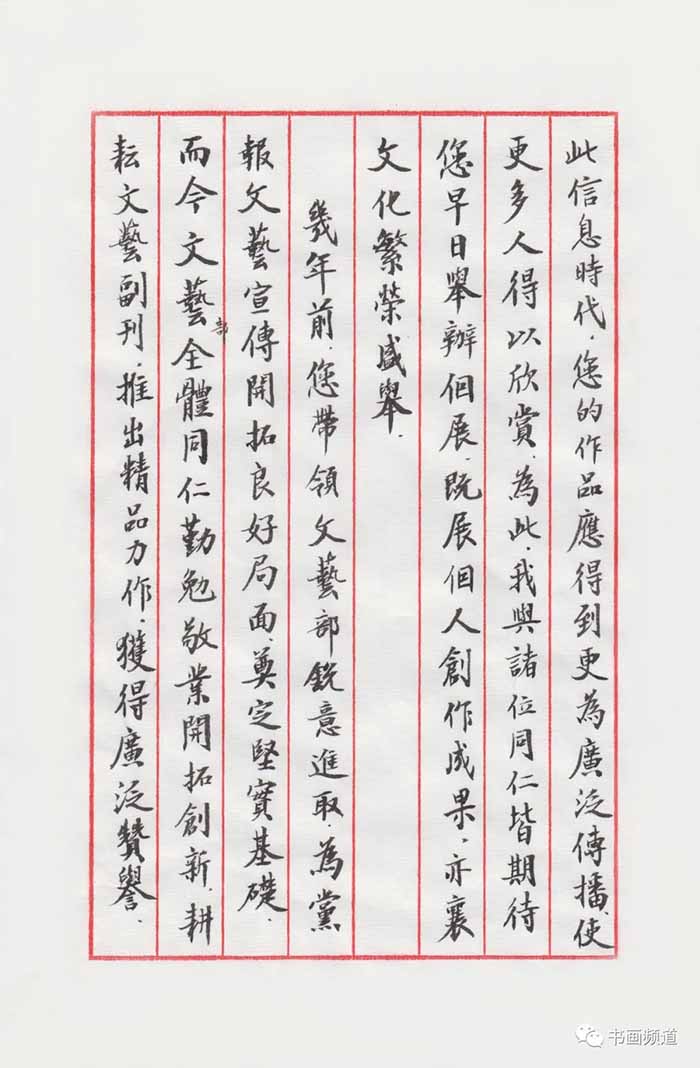 此信息時代，您的作品應得到更為廣泛傳播，使
更多人得以欣賞，為此，我與諸位同仁皆期待
您早日舉辦個展，既展個人創作成果，亦襄
文化繁榮盛舉．
幾年前，您帶領文藝部銳意進取，為黨
報文藝宣傳開拓良好局面，奠定堅實基礎．
而今文藝部全體同仁勤勉敬業開拓創新，耕
耘文藝副刊，推出精品力作，獲得廣泛贊譽．
书画频道